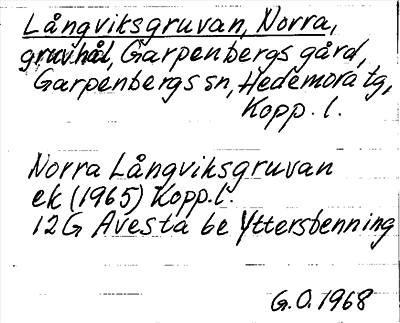 Långviksgruvan, Norra,
gruvhål, Garpenbergs gård,
Garpenbergs sn, Hedemora tg,
Kopp. l.
Norra Långviksgruvan
ek (1965) Kopp.l.
12G Avesta 6e Yttersbenning
G.O. 1968